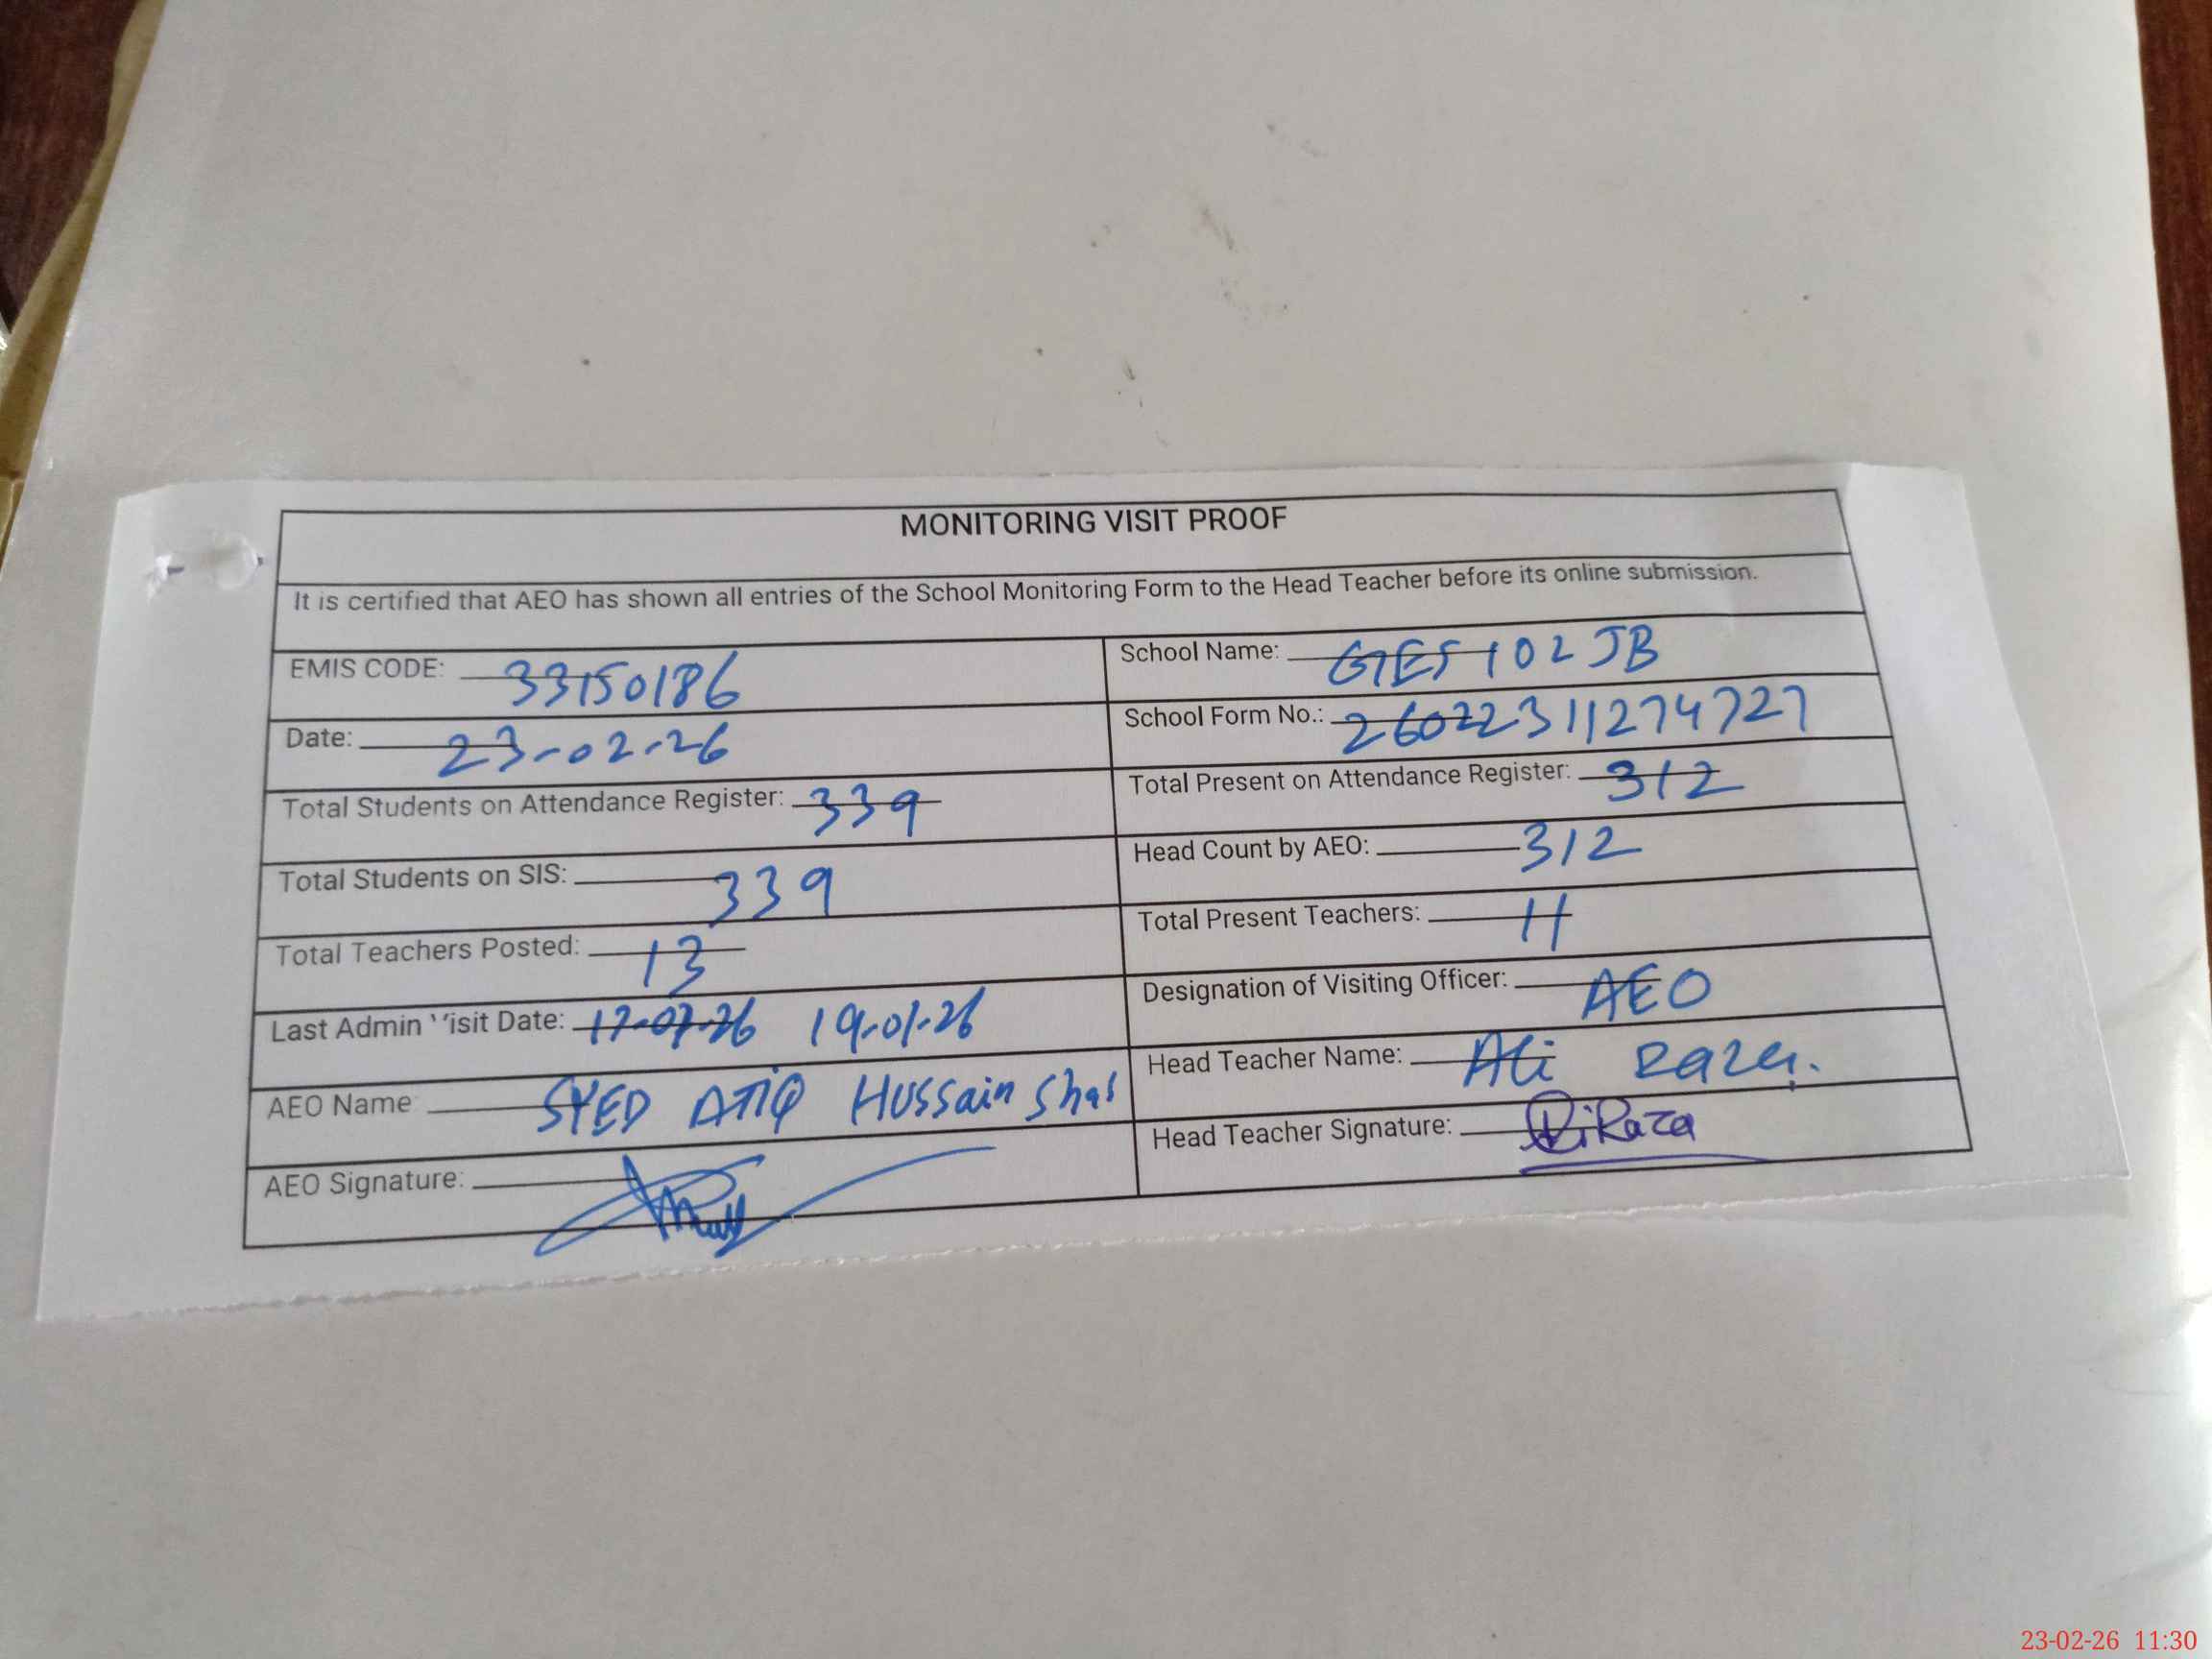 MONITORING VISIT PROOF
It is certified that AEO has shown all entries of the School Monitoring Form to the Head Teacher before its online submission.
EMIS CODE: 33150186
School Name: GES 102 JB
Date: 23-02-26
School Form No.: 26022311274727
Total Students on Attendance Register: 339
Total Present on Attendance Register: 312
Total Students on SIS: 339
Head Count by AEO: 312
Total Teachers Posted: 13
Total Present Teachers: 11
Last Admin Visit Date: 19-01-26
Designation of Visiting Officer: AEO
AEO Name SYED ATIQ Hussain Shah
Head Teacher Name: Ali Raza.
AEO Signature:
Head Teacher Signature: Raza
23-02-26 11:30